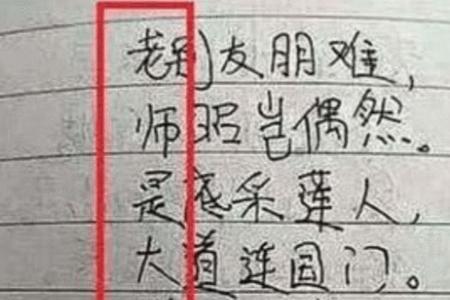 老到友朋难，
师昭岂偶然。
是底采莲人，
大道连国门。